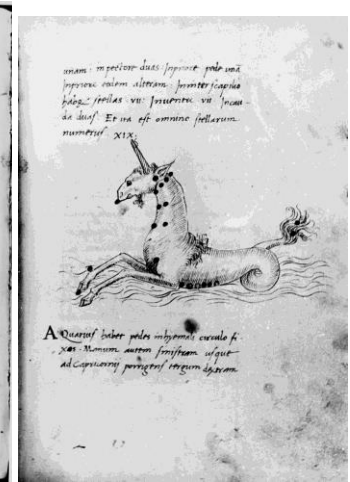 unam: in pectore duas. Inpriore pede unā
Inpriore eodem alteram. Ininterscapilio
habet stellas. vii. Inventre vii Incau-
da duas. Et ita est omnino stellarum
numerus. XIX.
AQuarius habet pedes inhyemali circulo fi
xos. Manum autem sinistram usque
ad Capricornii porrigens tergum dextram